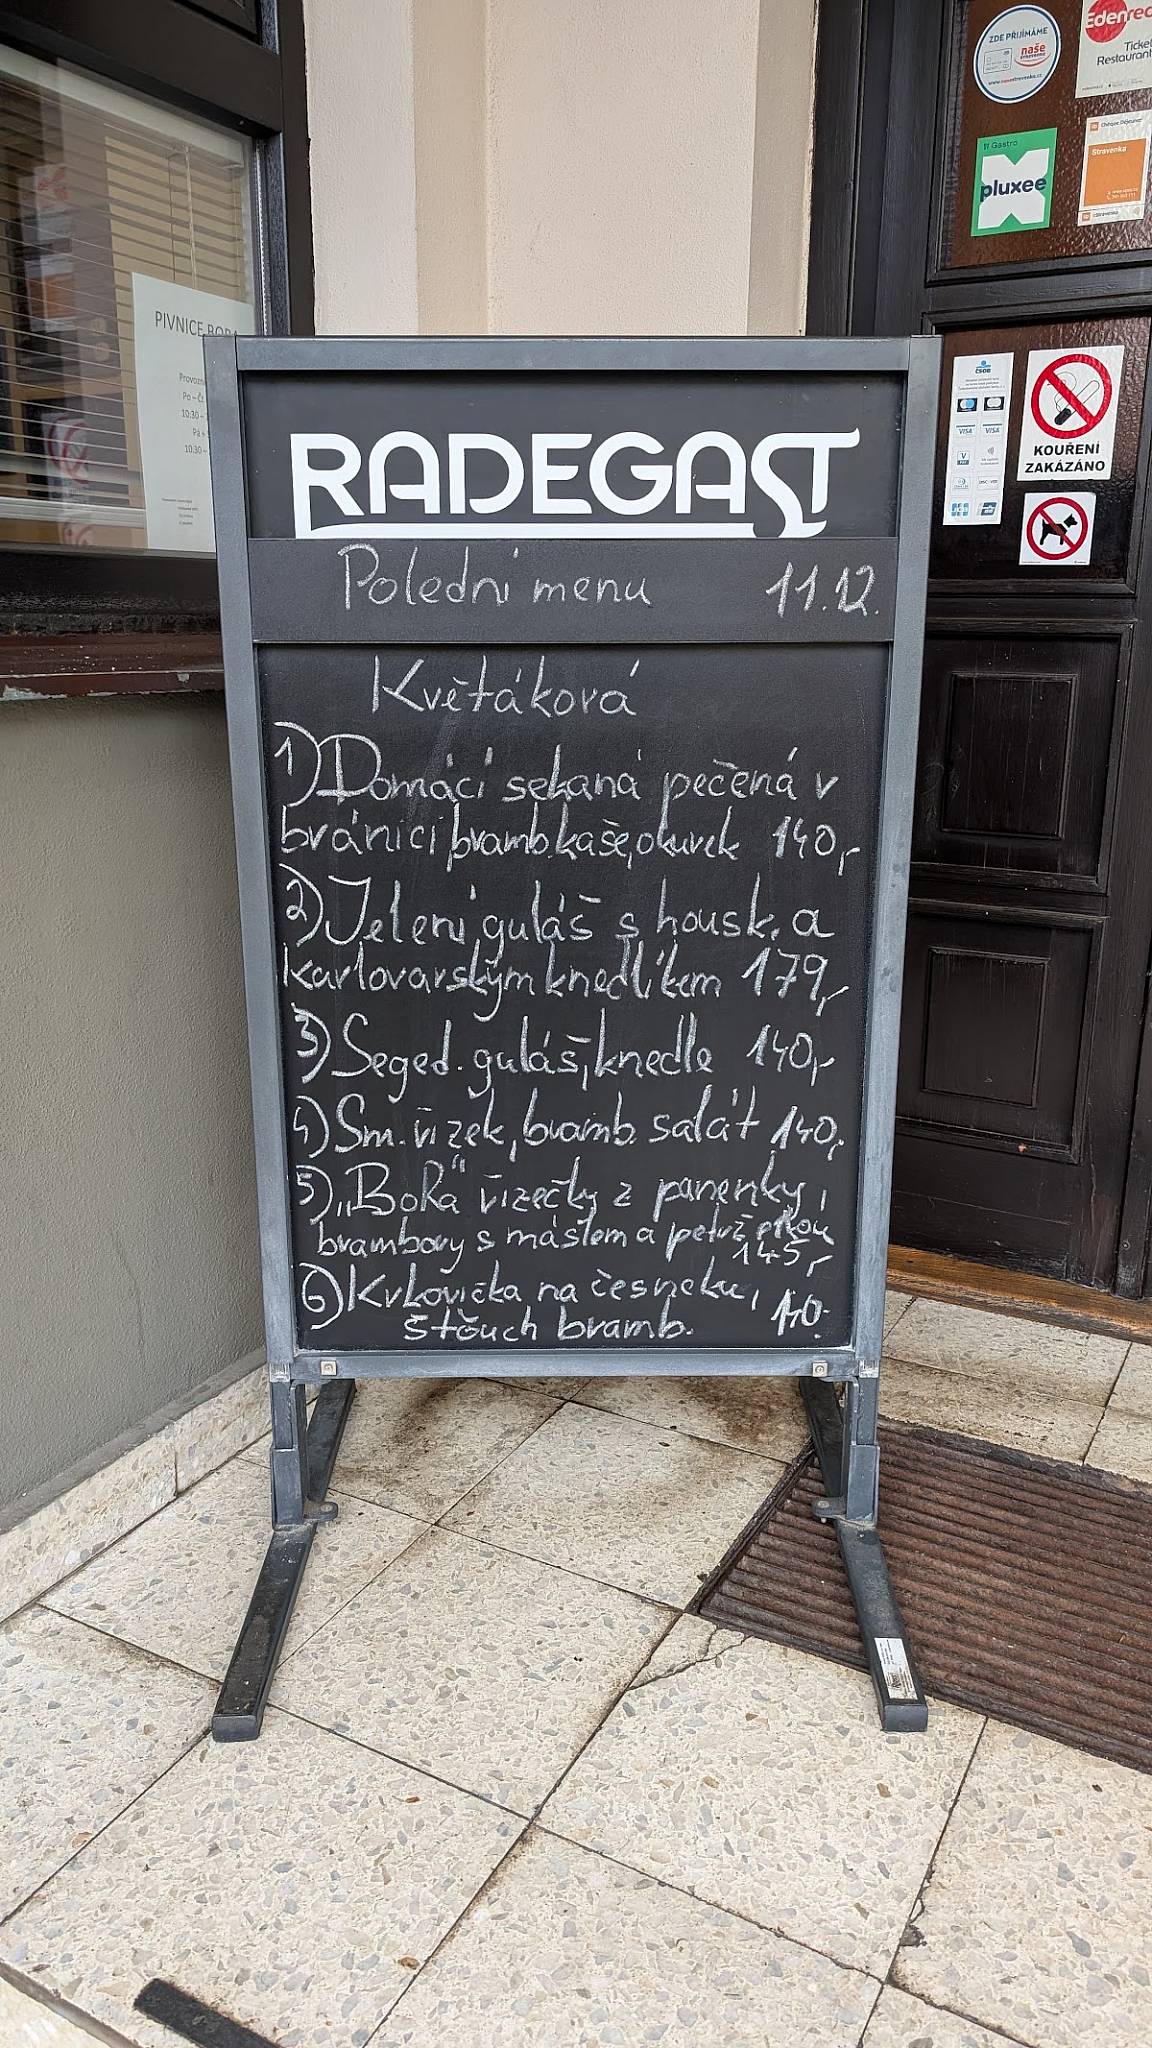 ZDE PŘIJÍMÁME
naše
stravenka
www.nasestravenka.cz
Edenred
Ticket
Restaurant
Gastro
pluxee
Chèque Déjeuner
Stravenka
PIVNICE BORA
Provozn
Po – Čt
10:30 –
Pá +
10:30 –
ČSOB
VISA VISA
KOUŘENÍ
ZAKÁZÁNO
RADEGAST
Polední menu 11.12.
Květáková
1) Domácí sekaná pečená v
bránici, bramb.kaše, okurek 140,-
2) Jelení guláš s housk. a
karlovarským knedlíkem 179,-
3) Seged. guláš, knedle 140,-
4) Sm. řízek, bramb. salát 140,-
5) „BoRa" řízečky z panenky,
brambory s máslem a petrželkou
145,-
6) Krkovička na česneku,
šťouch bramb. 140,-